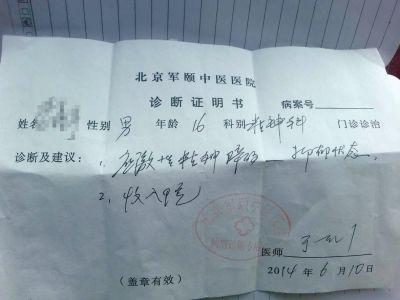 北京军颐中医医院
诊断证明书
病案号
姓名 性别 男 年龄 16 科别 精神科 门诊诊治
诊断及建议：1. 应激性精神障碍——抑郁状态。
2. 收入
医师
（盖章有效） 2014 年 6 月 10 日